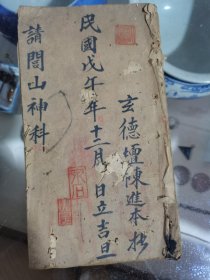 玄德壇陳進本抄
民國戊午年十二月日立吉旦
請閭山神科